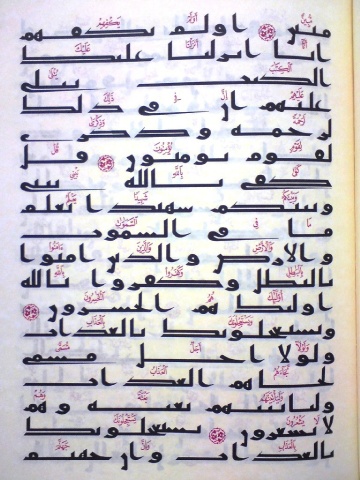 مبين ۝ اولم يكفهم
انا انزلنا عليك
الكتب يتلى
عليهم ان في ذلك
لرحمة وذكرى
لقوم يومنون ۝ قل
كفى بالله بيني
وبينكم شهيدا يعلم
ما في السموت
والارض والذين امنوا
بالبطل وكفروا بالله
اوليك هم الخسرون ۝
ويستعجلونك بالعذاب
ولولا اجل مسمى
لجاهم العذاب
ولياتينهم بغتة وهم
لا يشعرون ۝ يستعجلونك
بالعذاب وان جهنم